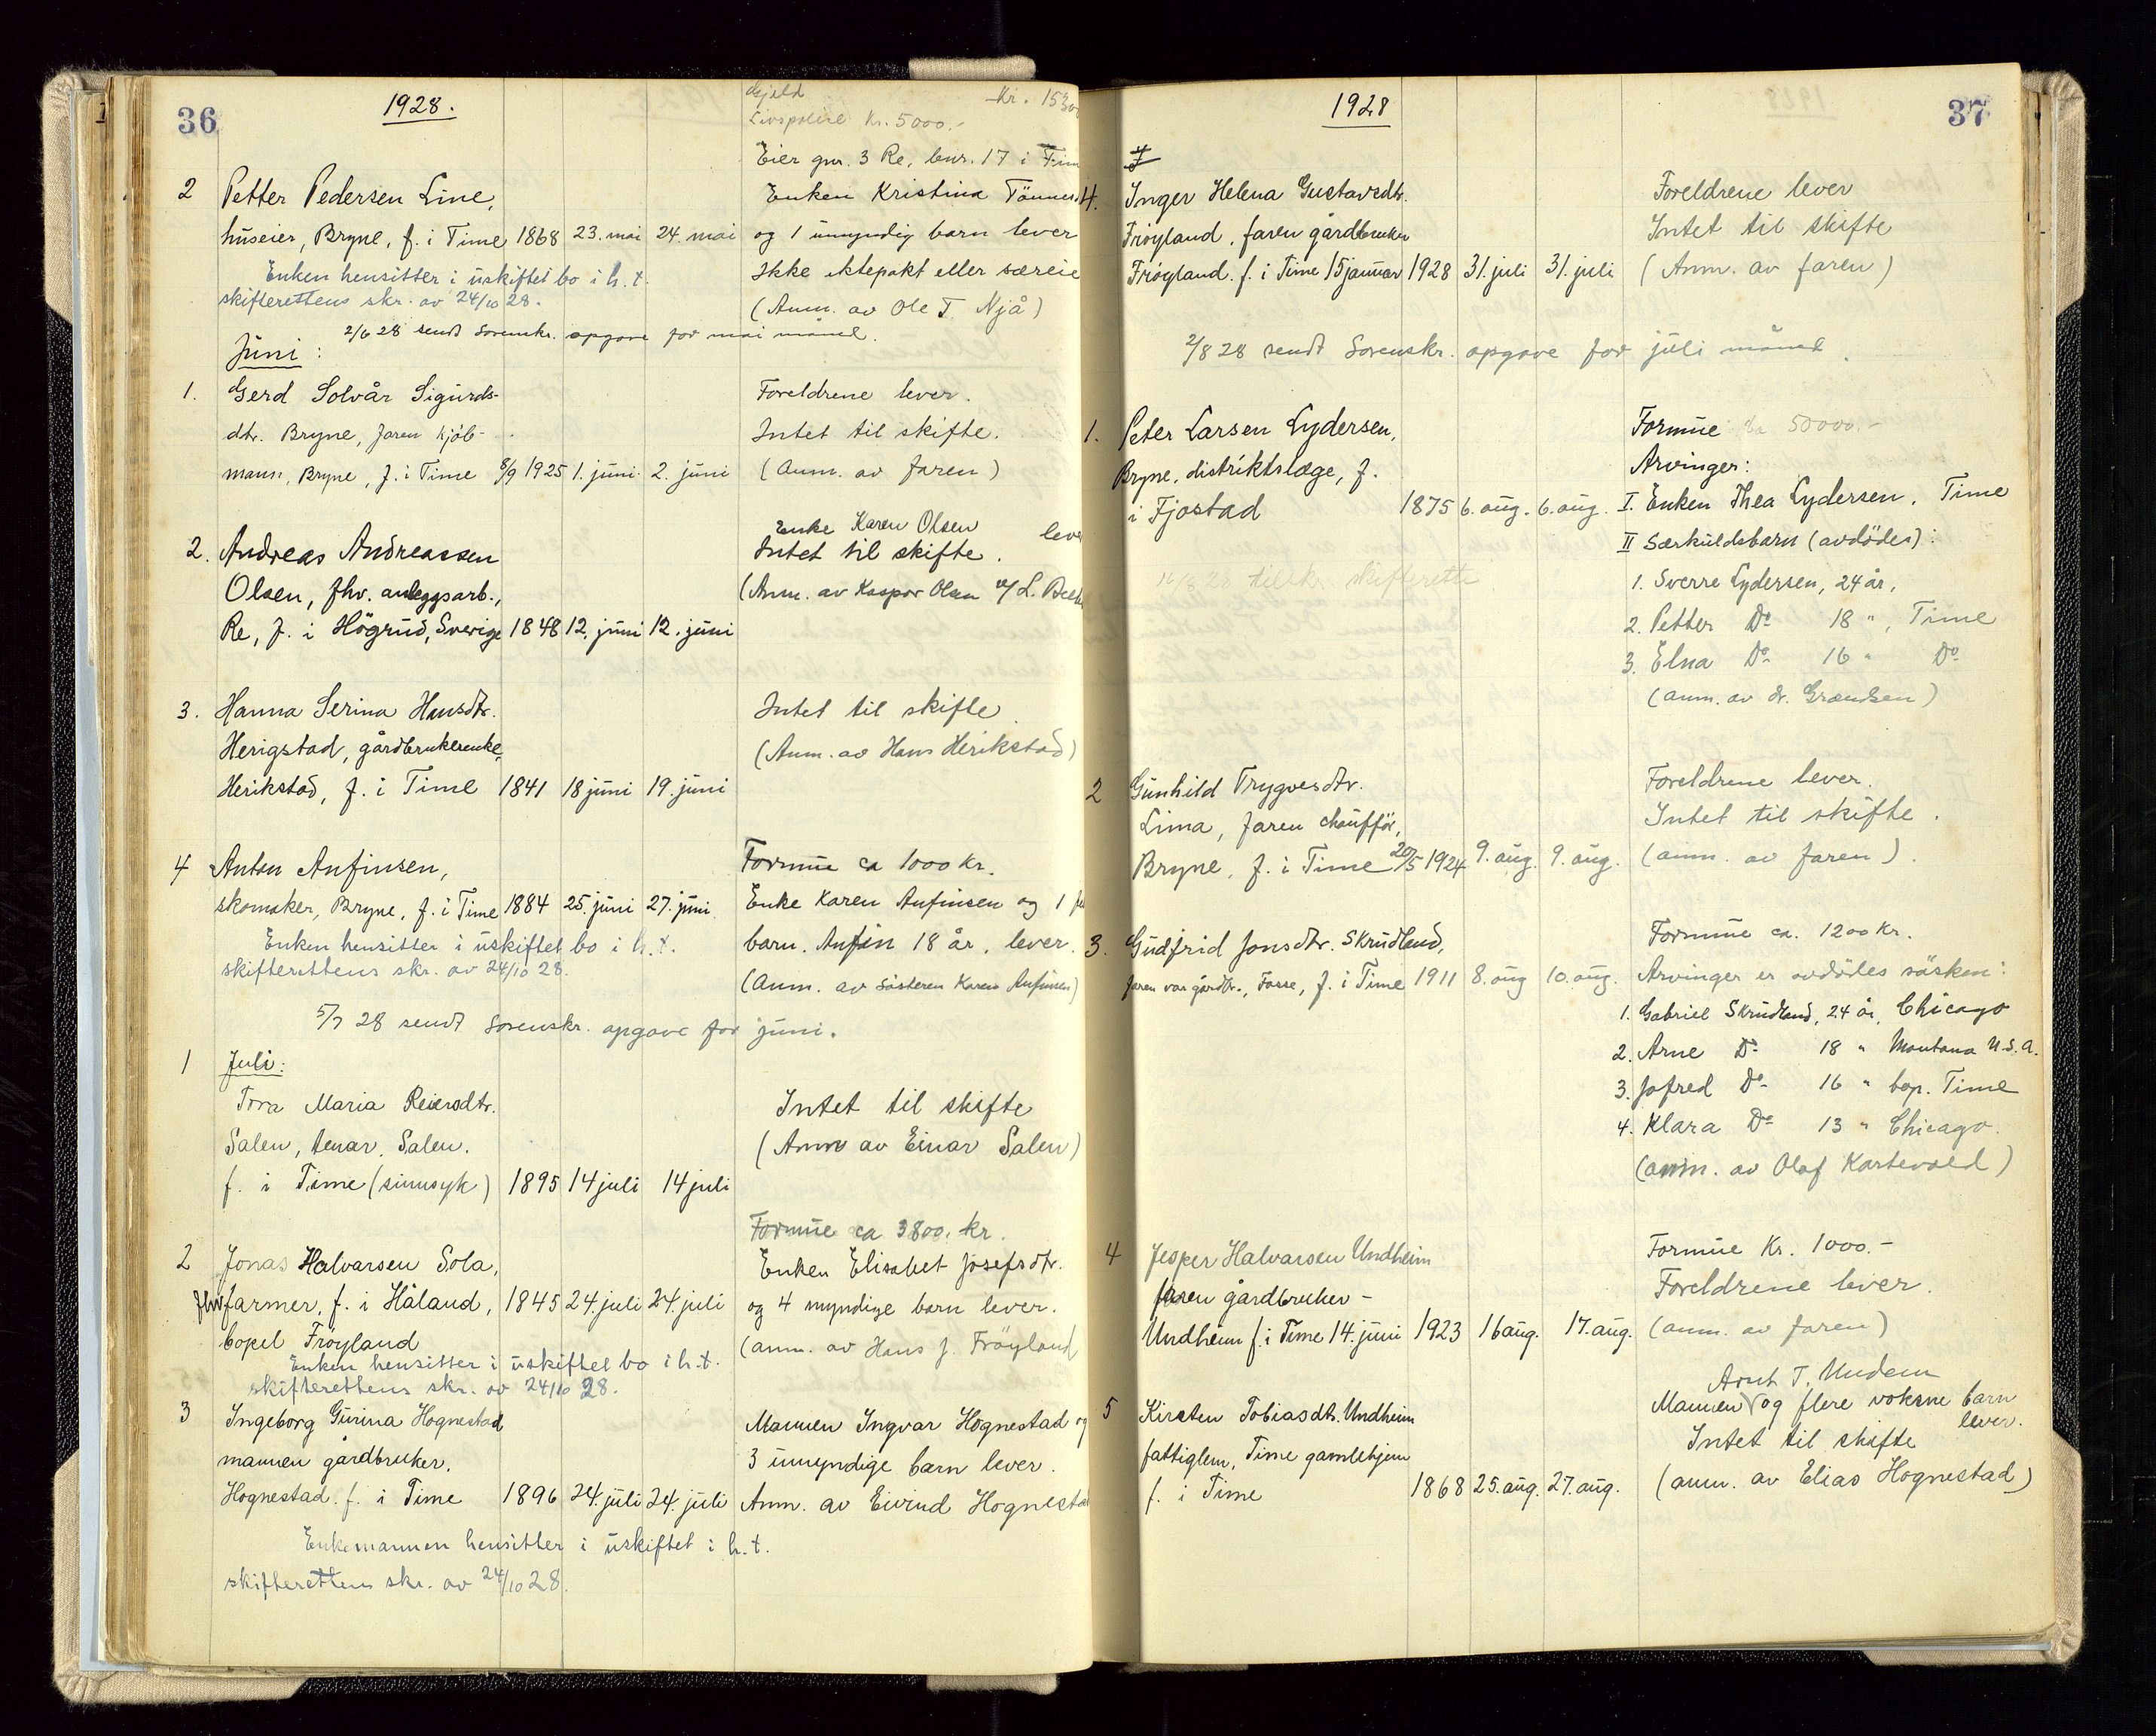 36
1928.
Gjeld Kr. 1530
Livspolise Kr. 5000.-
Eier gnr. 3 Re, bnr. 17 i Tim
2 Petter Pedersen Line, Enken Kristina Tönnes
huseier, Bryne, f. i Time 1868 23. mai 24. mai og 1 umyndig barn lever
Enken hensitter i uskiftet bo i h. t. Ikke ektepakt eller særeie
skifterettens skr. av 24/10 28. (Anm. av Ole T. Njå)
2/6 28 sendt Sorenskr. opgave for mai måned.
Juni:
1. Gerd Solvår Sigurds- Foreldrene lever.
dtr. Bryne, faren kjöb- Intet til skifte.
mann, Bryne, f. i Time 8/9 1925 1. juni 2. juni (Anm. av faren)
Enke Karen Olsen lever
2. Andreas Andreassen Intet til skifte.
Olsen, fhv. anleggsarb., (Anm. av Kaspar Olsen v/ L.
Re, f. i Högrud, Sverige 1848 12. juni 12. juni
3. Hanna Serina Hansdtr. Intet til skifte
Herigstad, gårdbrukerenke, (Anm. av Hans Herikstad)
Herikstad, f. i Time 1841 18 juni 19. juni
4 Anton Anfinsen, Formue ca 1000 kr.
skomaker, Bryne, f. i Time 1884 25. juni 27. juni Enke Karen Anfinsen og 1
Enken hensitter i uskiftet bo i h. t. barn. Anfin 18 år, lever.
skifterettens skr. av 24/10 28. (Anm. av søsteren Karen Anfinsen)
5/7 28 sendt Sorenskr. opgave for juni.
1 Juli:
Tora Maria Reiersdtr. Intet til skifte
Salen, tenar, Salen. (Anm av Einar Salen)
f. i Time (sinnsyk) 1895 14 juli 14 juli
Formue ca 3800. kr.
2 Jonas Halvarsen Sola, Enken Elisabet Josefsdtr.
fhv farmer, f. i Håland, 1845 24. juli 24. juli og 4 myndige barn lever.
bopel Frøyland (anm. av Hans J. Fröyland
Enken hensitter i uskiftet bo i h. t.
skifterettens skr. av 24/10 28.
3 Ingeborg Gurina Hognestad Mannen Ingvar Hognestad og
mannen gårdbruker, 3 umyndige barn lever.
Hognestad. f. i Time 1896 24. juli 24. juli Anm. av Eivind Hognesta
Enkemannen hensitter i uskiftet i h. t.
skifterettens skr. av 24/10 28.
37
1928
4. Inger Helena Gustavsdtr. Foreldrene lever
Frøyland, faren gårdbruker Intet til skifte
Frøyland. f. i Time 15 januar 1928 31. juli 31. juli (Anm. av faren)
2/8 28 sendt Sorenskr. opgave for juli måned.
1. Peter Larsen Lydersen, Formue 50000.-
Bryne, distriktslæge, f. Arvinger:
i Fjostad 1875 6. aug. 6. aug. I. Enken Thea Lydersen, Time
II Særkuldsbarn (avdödes):
16/8 28 tilskr. skifteretten 1. Sverre Lydersen, 24 år,
2. Petter Do 18 ", Time
3. Elna Do 16 " Do
(anm. av dr. Grændsen)
2 Gunhild Trygvesdtr. Foreldrene lever.
Lima, faren chauffør, Intet til skifte.
Bryne, f. i Time 20/5 1924 9. aug. 9. aug. (anm. av faren).
3. Gudfrid Jonsdtr. Skrudland, Formue ca. 1200 kr.
faren var gårdbr., Fosse, f. i Time 1911 8. aug 10. aug. Arvinger er avdödes søsken:
1. Gabriel Skrudland, 24 år, Chicago
2. Arne Do 18 " Montana U.S.A.
3. Jofred Do 16 " bop. Time
4. Klara Do 13 " Chicago.
(anm. av Olaf Kartevold)
4 Jesper Halvarsen Undheim Formue Kr. 1000.-
faren gårdbruker - Foreldrene lever.
Undheim f. i Time 14. juni 1923 16 aug. 17. aug. (anm. av faren)
Arnt T. Undem
5 Kirsten Tobiasdtr. Undheim Mannen og flere voksne barn lever.
fattiglem, Time gamlehjem Intet til skifte
f. i Time 1868 25. aug. 27. aug. (anm. av Elias Hognestad)